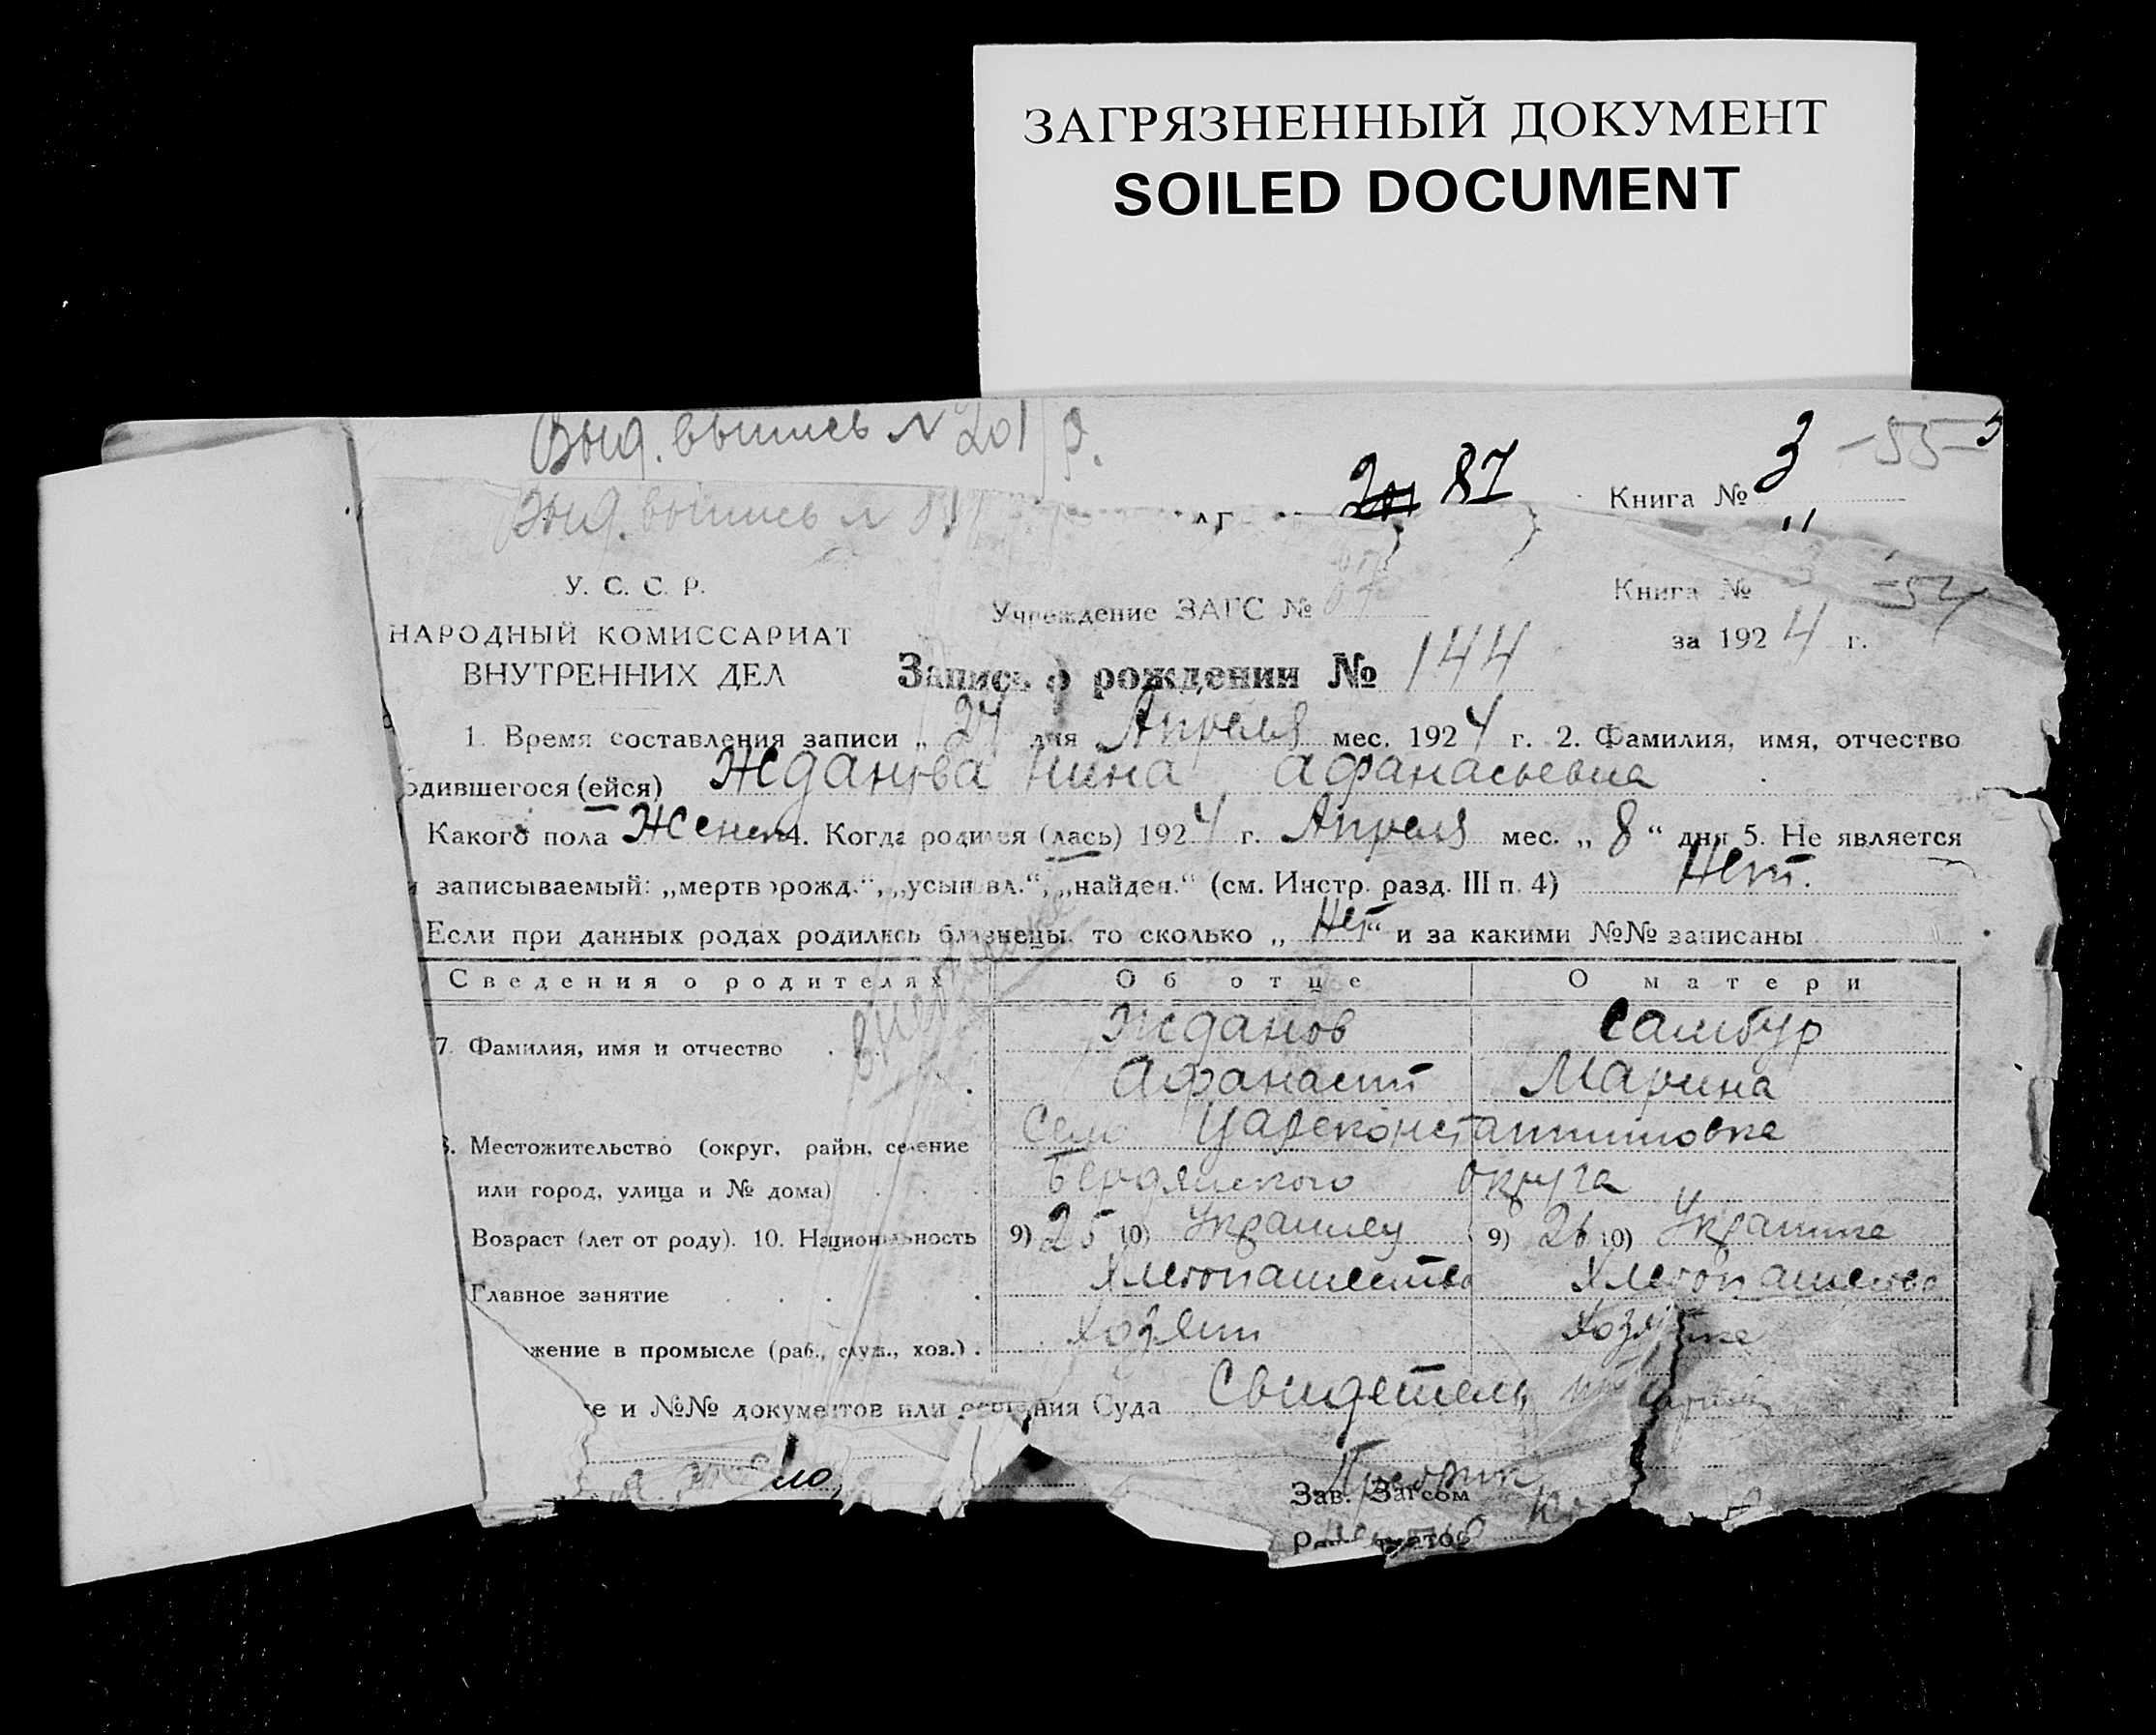 ЗАГРЯЗНЕННЫЙ ДОКУМЕНТ
SOILED DOCUMENT
Выд. выпись N 201/р.
87 Книга № 3 -55-
Выд. выпись N
У. С. С. Р.
Учреждение ЗАГС № 87 Книга №
НАРОДНЫЙ КОМИССАРИАТ за 1924 г.
ВНУТРЕННИХ ДЕЛ Запись о рождении № 144
1. Время составления записи „ 24 дня Апреля мес. 1924 г. 2. Фамилия, имя, отчество
одившегося (ейся) Жданова Нина Афанасьевна
Какого пола Женск 4. Когда родился (лась) 1924 г. Апреля мес. „ 8 “ дня 5. Не является
и записываемый: „мертворожд.“, „усыновл.“, „найден.“ (см. Инстр. разд. III п. 4) Нет.
Если при данных родах родились близнецы, то сколько „ Нет “ и за какими №№ записаны
Сведения о родителях Об отце О матери
7. Фамилия, имя и отчество Жданов Самбур
Афанасий Марина
8. Местожительство (округ, район, селение Село Цареконстантиновка
или город, улица и № дома) Бердянского округа
Возраст (лет от роду). 10. Национальность 9) 25 10) Украинец 9) 26 10) Украинка
Главное занятие Хлебопашество Хлебопашество
жение в промысле (раб., служ., хоз.) Хозяин Хозяйка
е и №№ документов или решения Суда Свидетель
Зав. Загсом